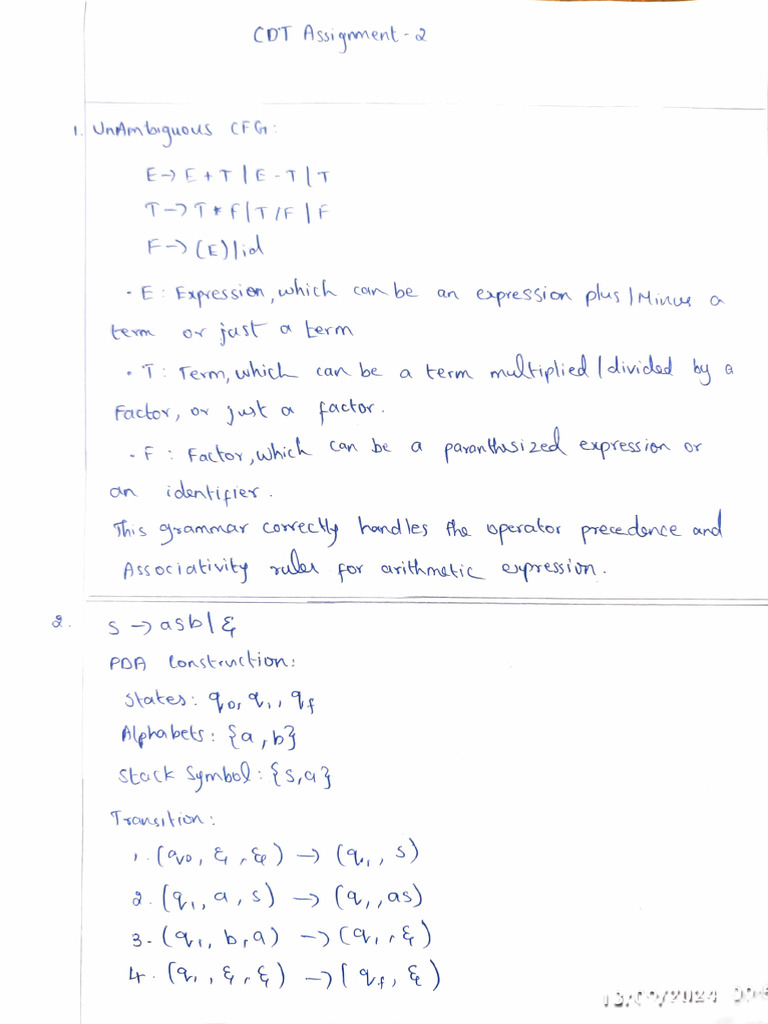 CDT Assignment - 2
1. UnAmbiguous CFG:
E → E + T | E - T | T
T → T * F | T / F | F
F → (E) | id
• E : Expression, which can be an expression plus / Minus a
term or just a term
• T : Term, which can be a term multiplied / divided by a
Factor, or just a factor.
• F : Factor, which can be a paranthesized expression or
an identifier.
This grammar correctly handles the operator precedence and
Associativity rules for arithmetic expression.
2. S → aSb | ε
PDA Construction:
States: q₀, q₁, q_f
Alphabets: {a, b}
Stack Symbol: {S, a}
Transition:
1. (q₀, ε, ε) → (q₁, S)
2. (q₁, a, S) → (q₁, aS)
3- (q₁, b, a) → (q₁, ε)
4. (q₁, ε, ε) → (q_f, ε)